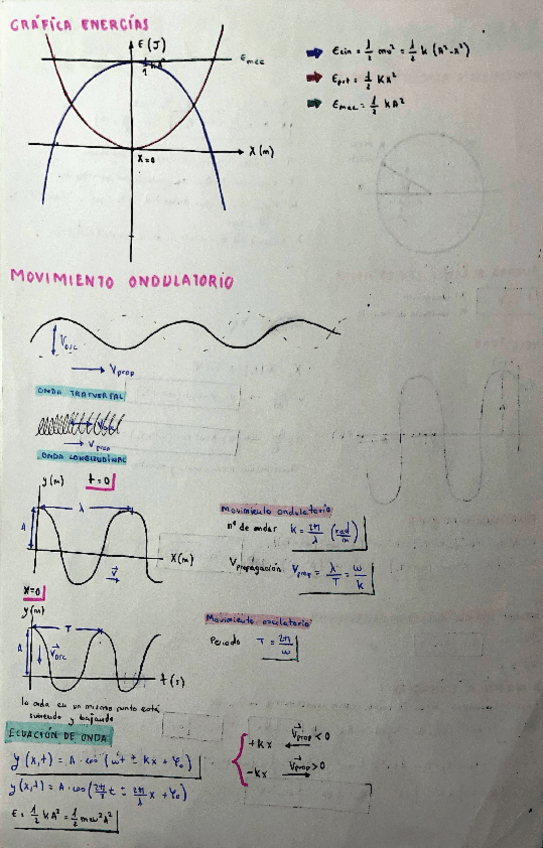 GRÁFICA ENERGÍAS
E (J)
½ kA²
Emec
X (m)
X=0
Ecin = ½ mv² = ½ k (A²-x²)
Epot = ½ KX²
Emec = ½ KA²
MOVIMIENTO ONDULATORIO
Vosc
Vprop
ONDA TRATVERSAL
Vosc
Vprop
ONDA LONGITUDINAL
y(m)
t=0
λ
A
X(m)
v
Movimiento ondulatorio
nº de ondas k = 2π/λ (rad/m)
Vpropagación Vprop = λ/T = ω/k
x=0
y(m)
T
A
Vosc
t(s)
Movimiento oscilatorio
Periodo T = 2π/ω
la onda en un mismo punto está
subiendo y bajando
ECUACIÓN DE ONDA
y (x,t) = A · cos (ωt ± Kx + φ₀)
y(x,t) = A · cos (2π/T t ± 2π/λ x + φ₀)
E = ½ kA² = ½ mω²A²
+kx Vprop < 0
-kx Vprop > 0